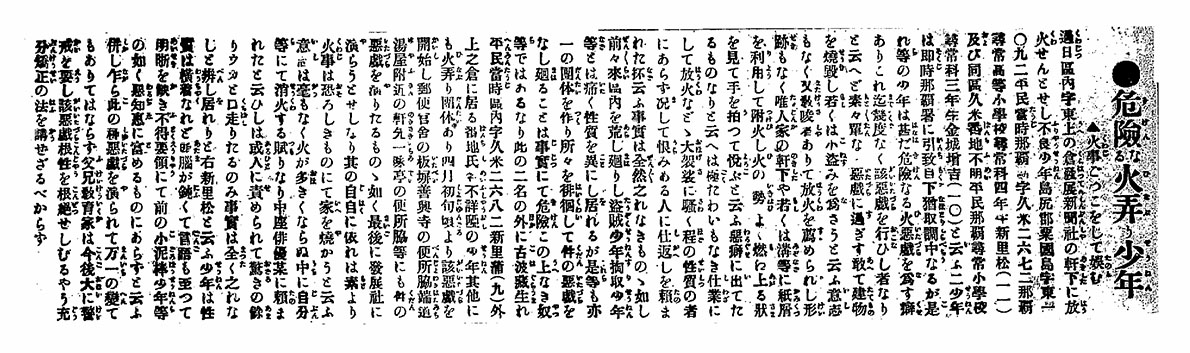 ●危險な火弄り少年
▲火事ごつこをして娯む
過日區內字東上の倉發展新聞社の軒下に放
火せんとせし不良少年島尻郡粟國島字東一
〇九二平民當時那覇區字久米二六七二那覇
尋常高等小學校尋常科四年平新里松(一一)
及び同區久米番地不明平民那覇尋常小學校
尋常科二年生金城增吉(一〇)と云ふ二少年
は即時那覇署に引致目下猶取調中なるが是
れ等の少年は甚だ危險なる火惡戯を爲す癖
ありこれ迄幾度なく該惡戯を行ひし者なり
と云へど素々單な惡戯に過ぎず敢て建物
を燒毀し若くは小盗みを爲さうと云ふ意志
もなく又敎唆者ありて放火を薦められし形
跡もなく唯人家の軒下や若くは溝等に紙屑
を利用して附火し火の勢よく燃わ上る狀
を見て手を拍つて悅ぶと云ふ惡癖に出てた
るものなりと云へは極たわいもなき仕業に
して放火など大袈裟に騷ぐ程の性質の者
にあらす況して恨みある人に仕返しを賴ま
れた抔云ふ事實は全然之れなきもの如し
前々來區內を荒し廻りし盗賊少年掏取少年
等とは痛く性質を異にし居れるが是等も亦
一の團体を作り所々を徘徊して件の惡戯を
なし廻ることは事實にて危險この上なき奴
等ではあるなり此の二名の外に古波藏生れ
平民當時區內字久米二六八二新里蒲(九)外
上之倉に居る番地氏名不詳啞の少年其他に
も火弄り團体あり四月初旬頃より該惡戯を
開始し郵便官舍の板塀善興寺の便所脇端道
湯屋附近の軒先一味亭の便所脇等にも件の
惡戯を演りたるもの如く最後に發展社に
演らうとせしなり其の自白に依れは素より
火事は恐ろしきものにて家を燒かうと云ふ
意志は毫もなく火が多きくならぬ中に自分
等にて消火する賦りなり中座俳優某に賴ま
れたと云ひしは成人に責められて驚きの餘
りウカと口走りたるのみ事實は全く之れな
しと辨し居れりと右新里松と云ふ少年は性
質は橫着なれど頭腦が銳くて言語も至つて
明晰を缺き不得要領にて前の小泥棒少年等
の如く惡知惠に富めるものにあらすと云ふ
併し乍ら此の種惡戯を演られて万一の變て
もありてはならず父兄敎育家は今後大に警
戒を要し該惡戯根性を根絕せしむるやう充
分矯正の法を講せざるべからす